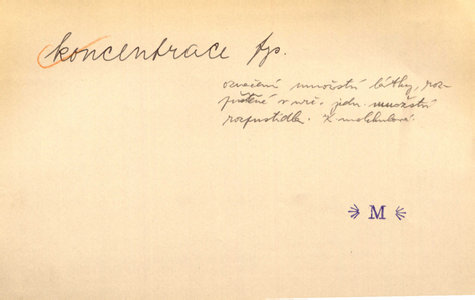 koncentrace fys.
označení množství látky, roz-
puštěné v urč. jedn. množství
rozpustidla. K molekulová.
M